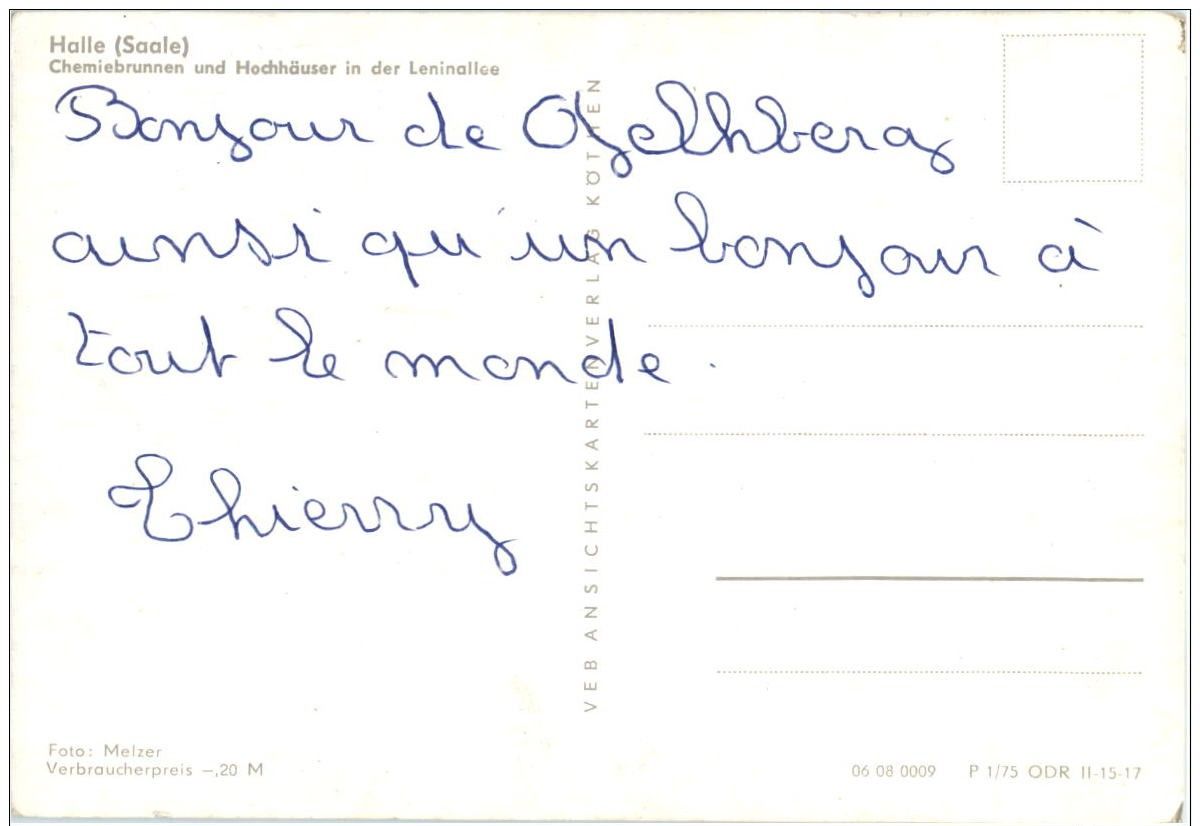 Halle (Saale)
Chemiebrunnen und Hochhäuser in der Leninallee
Bonjour de
ainsi qu'un bonjour à
tout le monde.
Thierry
VEB ANSICHTSKARTENVERLAG KÖTHEN
Foto: Melzer
Verbraucherpreis –,20 M
06 08 0009 P 1/75 ODR II-15-17